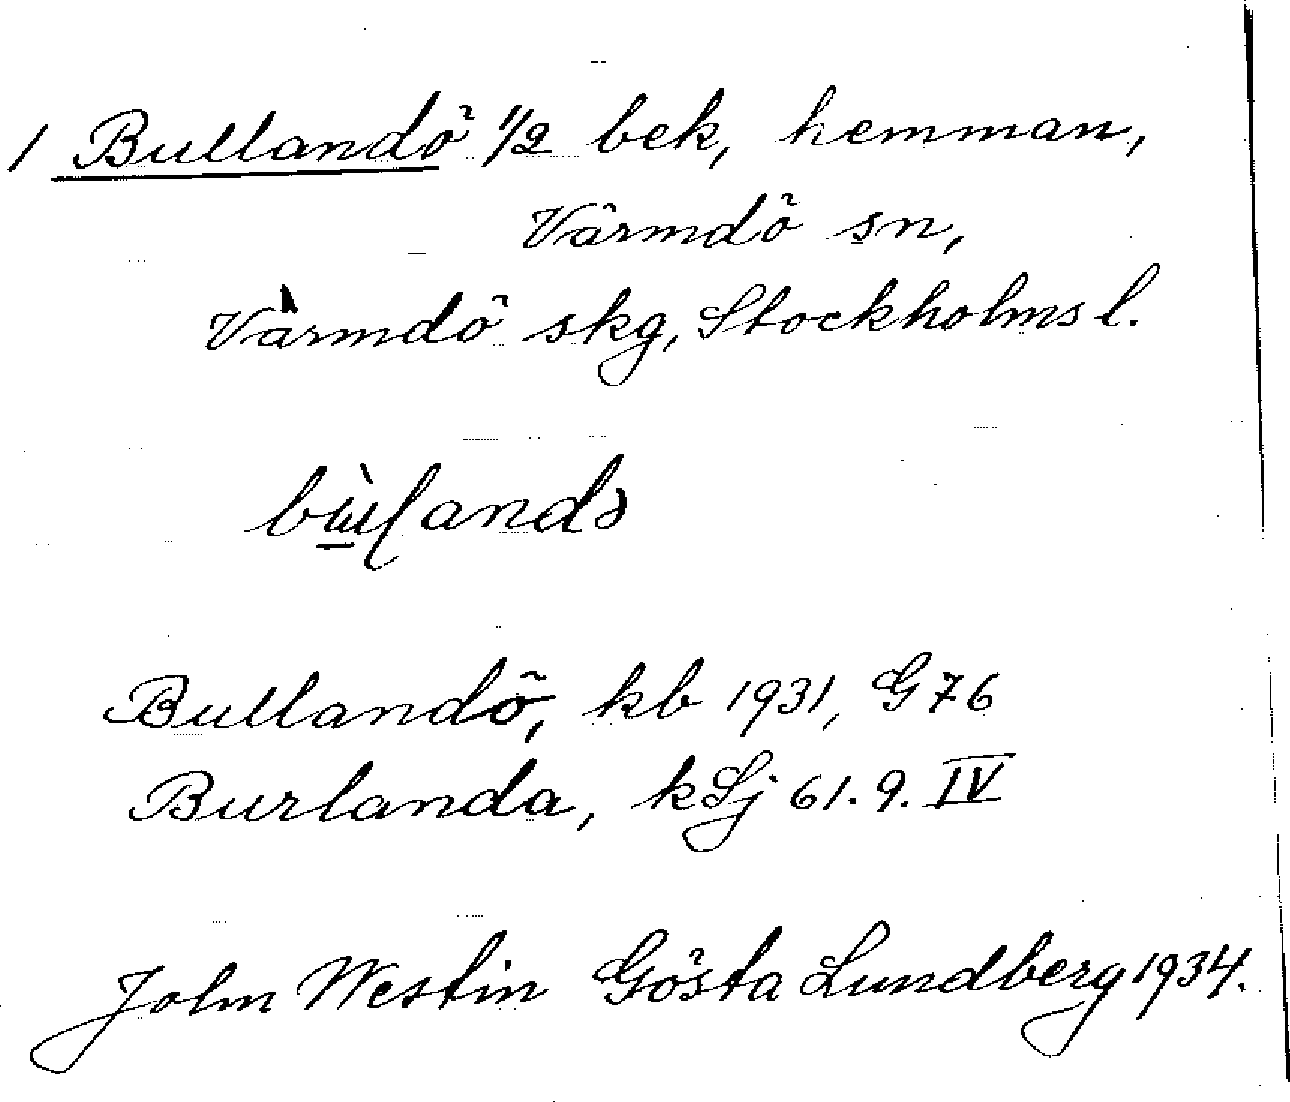 1 Bullandö 1/2 bek, hemman,
Värmdö sn,
Värmdö skg, Stockholms l.
Bullandö, kb 1931, G 76
Burlanda, kSj 61. 9. IV
John Westin Gösta Lundberg 1934.